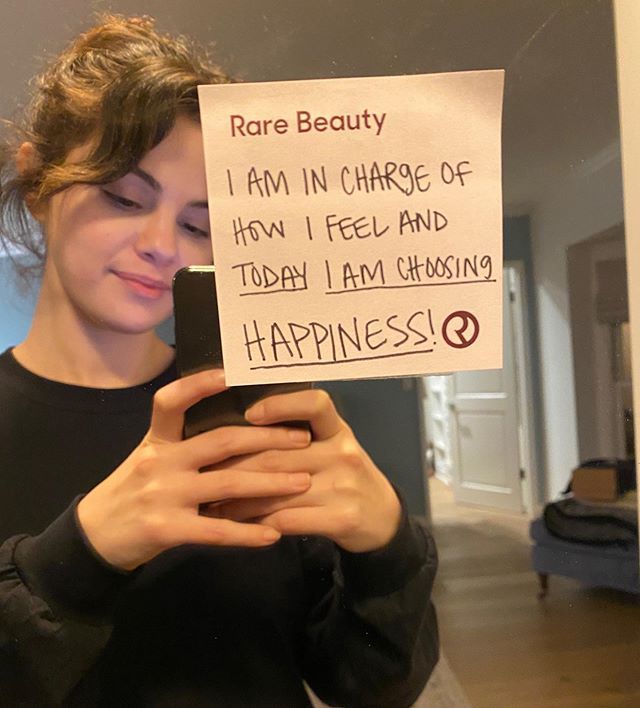 Rare Beauty
I AM IN CHARGE OF
HOW I FEEL AND
TODAY I AM CHOOSING
HAPPINESS! R